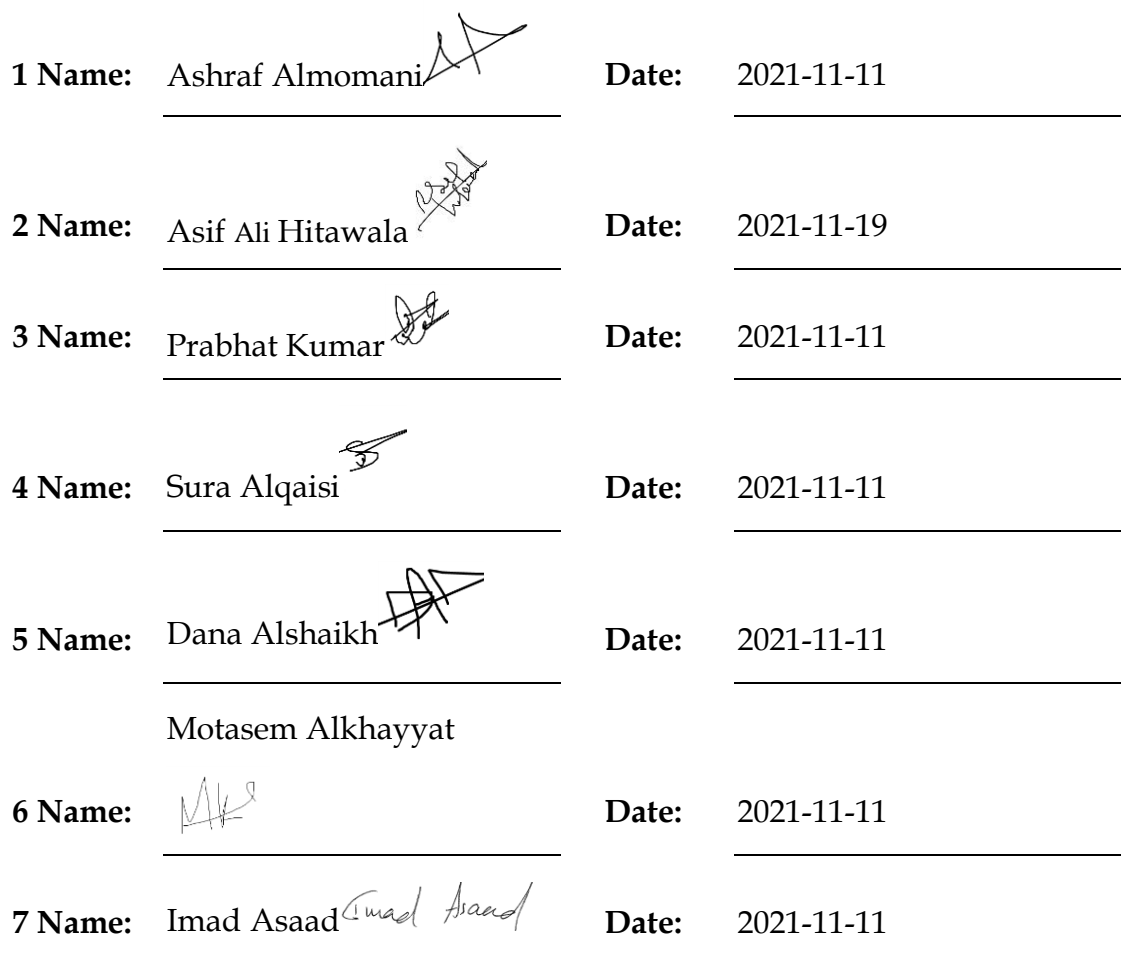 1 Name: Ashraf Almomani Date: 2021-11-11
2 Name: Asif Ali Hitawala Date: 2021-11-19
3 Name: Prabhat Kumar Date: 2021-11-11
4 Name: Sura Alqaisi Date: 2021-11-11
5 Name: Dana Alshaikh Date: 2021-11-11
Motasem Alkhayyat
6 Name: Date: 2021-11-11
7 Name: Imad Asaad Imad Asaad Date: 2021-11-11